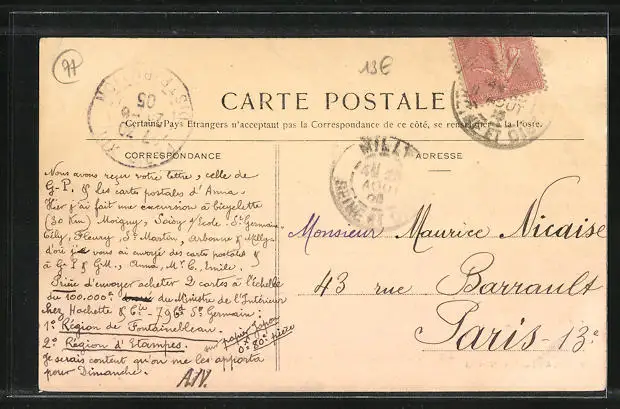 97
13€
CARTE POSTALE
Certains Pays Etrangers n'acceptent pas la Correspondance de ce côté, se renseigner à la Poste.
CORRESPONDANCE
ADRESSE
MILLY
AOUT
SEINE ET OISE
AOUT
SEINE ET OISE
05
Nous avons reçu votre lettre, celle de
G-P. & les cartes postales d'Anna.
Hier j'ai fait une excursion à bicyclette
(30 Km) Moigny, Soisy s/Ecole. St Germain
Cély, Fleury, St Martin, Arbonne & Milly
d'où je vous ai envoyé des cartes postales &
à G P & GM., Anna, Mr C, Emile.
Prière d'envoyer acheter 2 cartes à l'échelle
du 100.000e du Ministre de l'Intérieur
chez Hachette & Cie - 79 Bd St Germain:
1° Région de Fontainebleau.
2° Région d'Etampes.
sur papier Japon
0f 80 pièce
Je serais content qu'on me les apporta
pour Dimanche.
A.N.
Monsieur Maurice Nicaise
43 rue Barrault
Paris-13e